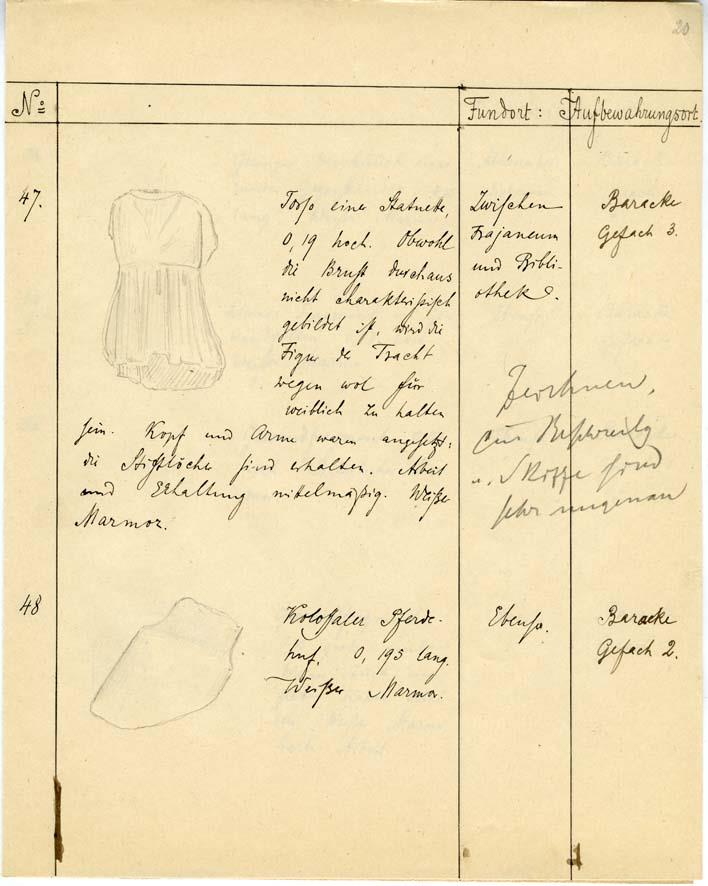 20
No
Fundort: Aufbewahrungsort.
47.
Torso einer Statuette,
0,19 hoch. Obwohl
die Brust durchaus
nicht charakteristisch
gebildet ist, wird die
Figur der Tracht
wegen wol für
weiblich zu halten
sein. Kopf und Arme waren angesetzt:
die Stiftlöcher sind erhalten. Arbeit
und Erhaltung mittelmäßig. Weißer
Marmor.
Zwischen
Trajaneum
und Bibli-
othek.
Baracke
Gefach 3.
Zeichnen,
Beschreibg
u. Skizze sind
sehr ungenau
48
Kolossaler Pferde-
huf. 0,195 lang.
Weißer Marmor.
Ebenso.
Baracke
Gefach 2.